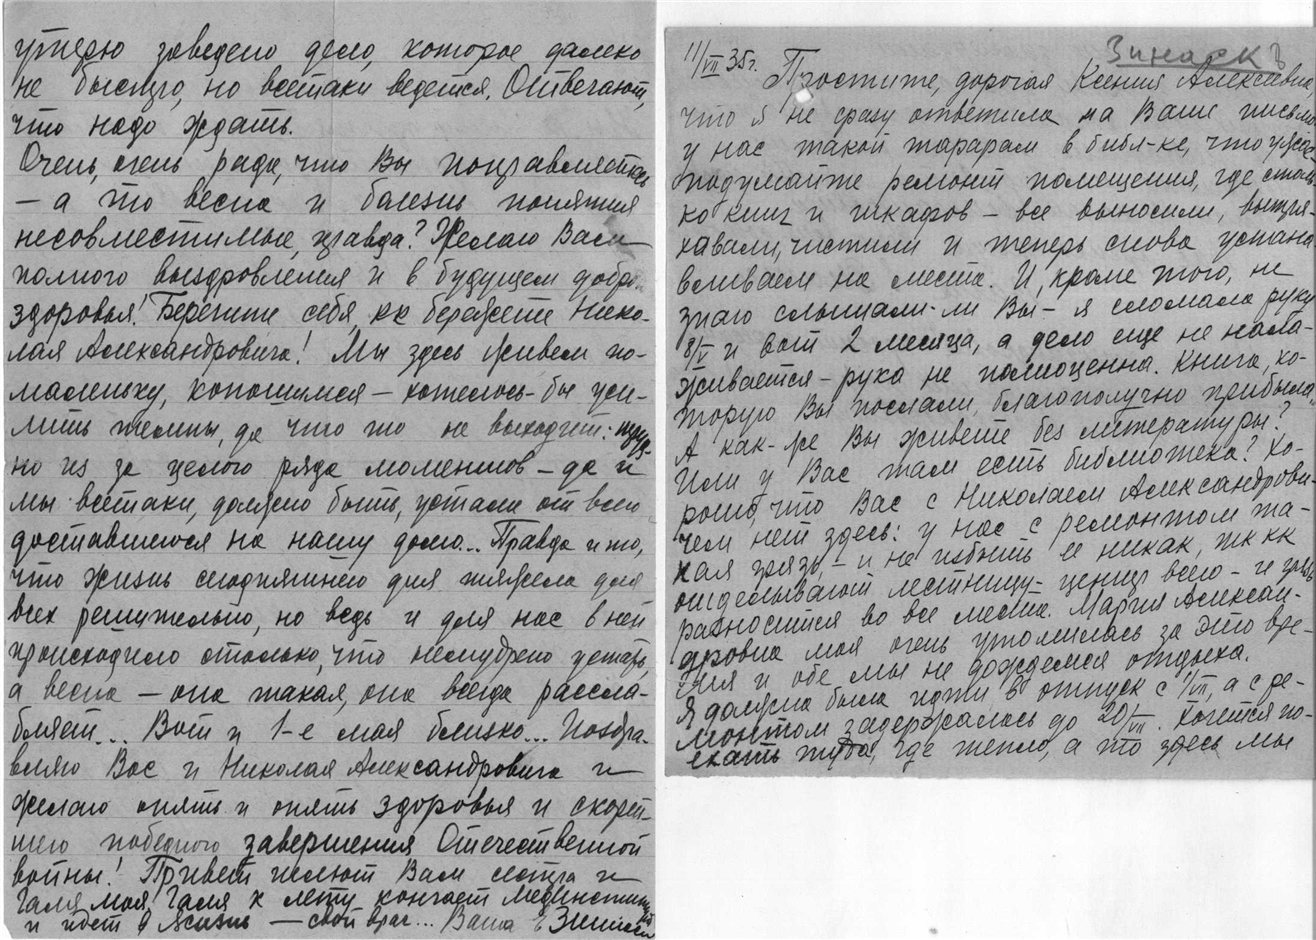 утерю заведено дело, которое далеко
не быстро, но всетаки ведется. Отвечают,
что надо ждать.
Очень, очень рада, что Вы поправляетесь
— а то весна и болезнь понятия
несовместимые, правда? Желаю Вам
полного выздоровления и в будущем доброго
здоровья! Берегите себя, кк бережете Нико-
лая Александровича! Мы здесь живем по-
маленьку, копошимся — хотелось-бы уси-
лить темпы, да что то не выходит: труд-
но из за целого ряда моментов — да и
мы всетаки, должно быть, устали от всего
доставшегося на нашу долю... Правда и то,
что жизнь сегодняшнего дня тяжела для
всех решительно, но ведь и для нас в ней
происходило столько, что немудрено устать,
а весна — она такая, она всегда рассла-
бляет... Вот и 1-е мая близко... Поздра-
вляю Вас и Николая Александровича и
желаю опять и опять здоровья и скорей-
шего победного завершения Отечественной
войны! Привет шлют Вам сестра и
Галя моя. Галя к лету кончает Мединститут
и идет в жизнь — свой врач... Ваша
11/VII 35г.
Простите, дорогая Ксения Алексеевна,
что я не сразу ответила на Ваше письмо
у нас такой тарарам в библ-ке, что ужас
подумайте ремонт помещения, где столь
ко книг и шкафов — все выносили, вытря-
хавали, чистили и теперь снова устана
вливаем на места. И, кроме того, не
знаю слышали-ли Вы — я сломала руку
8/V и вот 2 месяца, а дело еще не нала-
живается — рука не полноценна. Книга, ко-
торую Вы послали, благополучно прибыла.
А как-же Вы живете без литературы?
Или у Вас там есть библиотека? Хо-
рошо, что Вас с Николаем Александрови-
чем нет здесь: у нас с ремонтом та-
кая грязь, — и не избыть ее никак, тк кк
отделывают лестницу — центр всего — и грязь
разносится во все места. Мария Алексан-
дровна моя очень утомилась за это вре-
мя и обе мы не дождемся отдыха.
Я должна была идти в отпуск с 1/VII, а с ре-
монтом задержалась до 20/VII. Хочется по-
ехать туда, где тепло, а то здесь мы